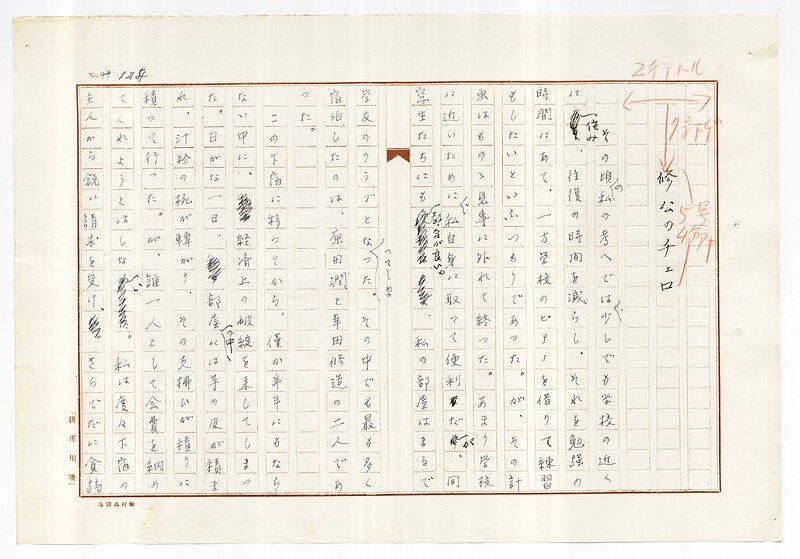 No. 44
コケテトル
7字下ゲ
5号
4分アキ
修公のチェロ
その頃私の考へでは少しでも学校の近く
に住み、往復の時間を減らし、それを勉強の
時間にあて、一方学校のピアノを借りて練習
もしたいといふつもりであった。が、その計
画はものゝ見事に外れて終った。あまり学校
に近いために、私自身に取って便利だが、同
窓生たちにも都合が良い。私の部屋はまるで
学友のクラブとなってしまった。その中でも最も多く
宿泊したのは、原田潤と草田修造の二人であ
った。
この下宿に移ってから、僅か半年にもなら
ない中に、経済上の破綻を来してしまっ
た。日がな一日、部屋の中には芋の皮が積ま
れ、汁粉の椀が轉がり、その支拂ひが積りに
積って行った。が、誰一人として会費を納め
てくれようとはしない。私は度々下宿の
主人から鋭い請求を受け、さらでだに貧弱